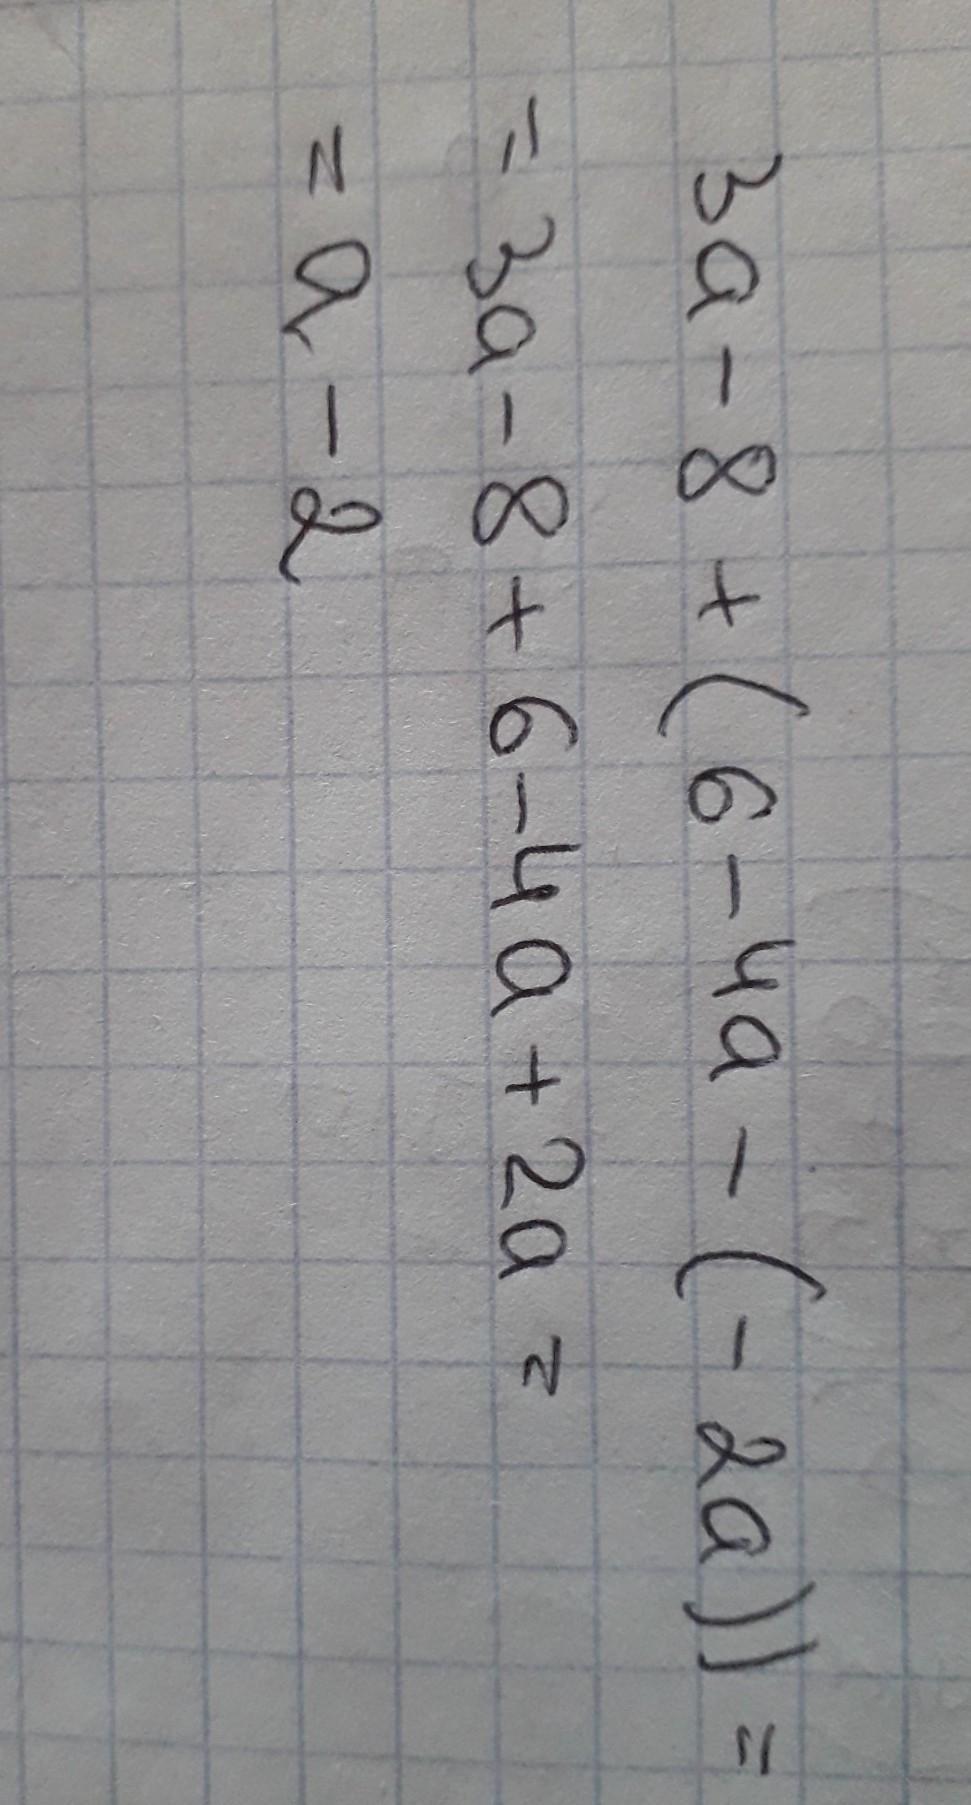 3a - 8 + (6 - 4a - (-2a)) =
= 3a - 8 + 6 - 4a + 2a =
= a - 2